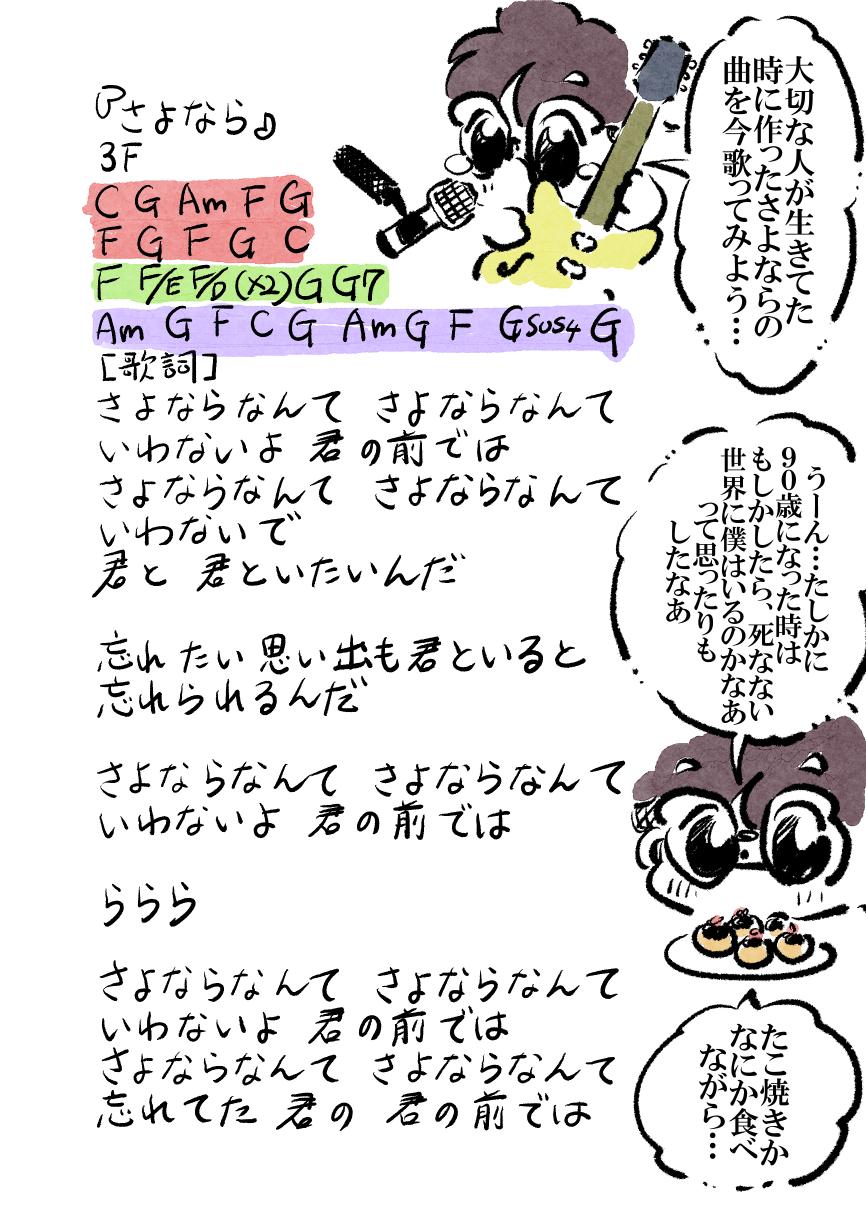 さよなら♪
3F
C G Am F G
F G F G C
F F/E F/D (×2) G G7
Am G F C G Am G F Gsus4 G
[歌詞]
さよならなんて さよならなんて
いわないよ 君の前では
さよならなんて さよならなんて
いわないで
君と 君といたいんだ
忘れたい思い出も君といると
忘れられるんだ
さよならなんて さよならなんて
いわないよ 君の前では
ららら
さよならなんて さよならなんて
いわないよ 君の前では
さよならなんて さよならなんて
忘れてた 君の 君の前では
大切な人が生きてた
時に作ったさよならの
曲を今歌ってみよう…
うーん…たしかに
90歳になった時は
もしかしたら、死なない
世界に僕はいるのかなあ
って思ったりも
したなあ
たこ焼きか
なにか食べ
ながら…